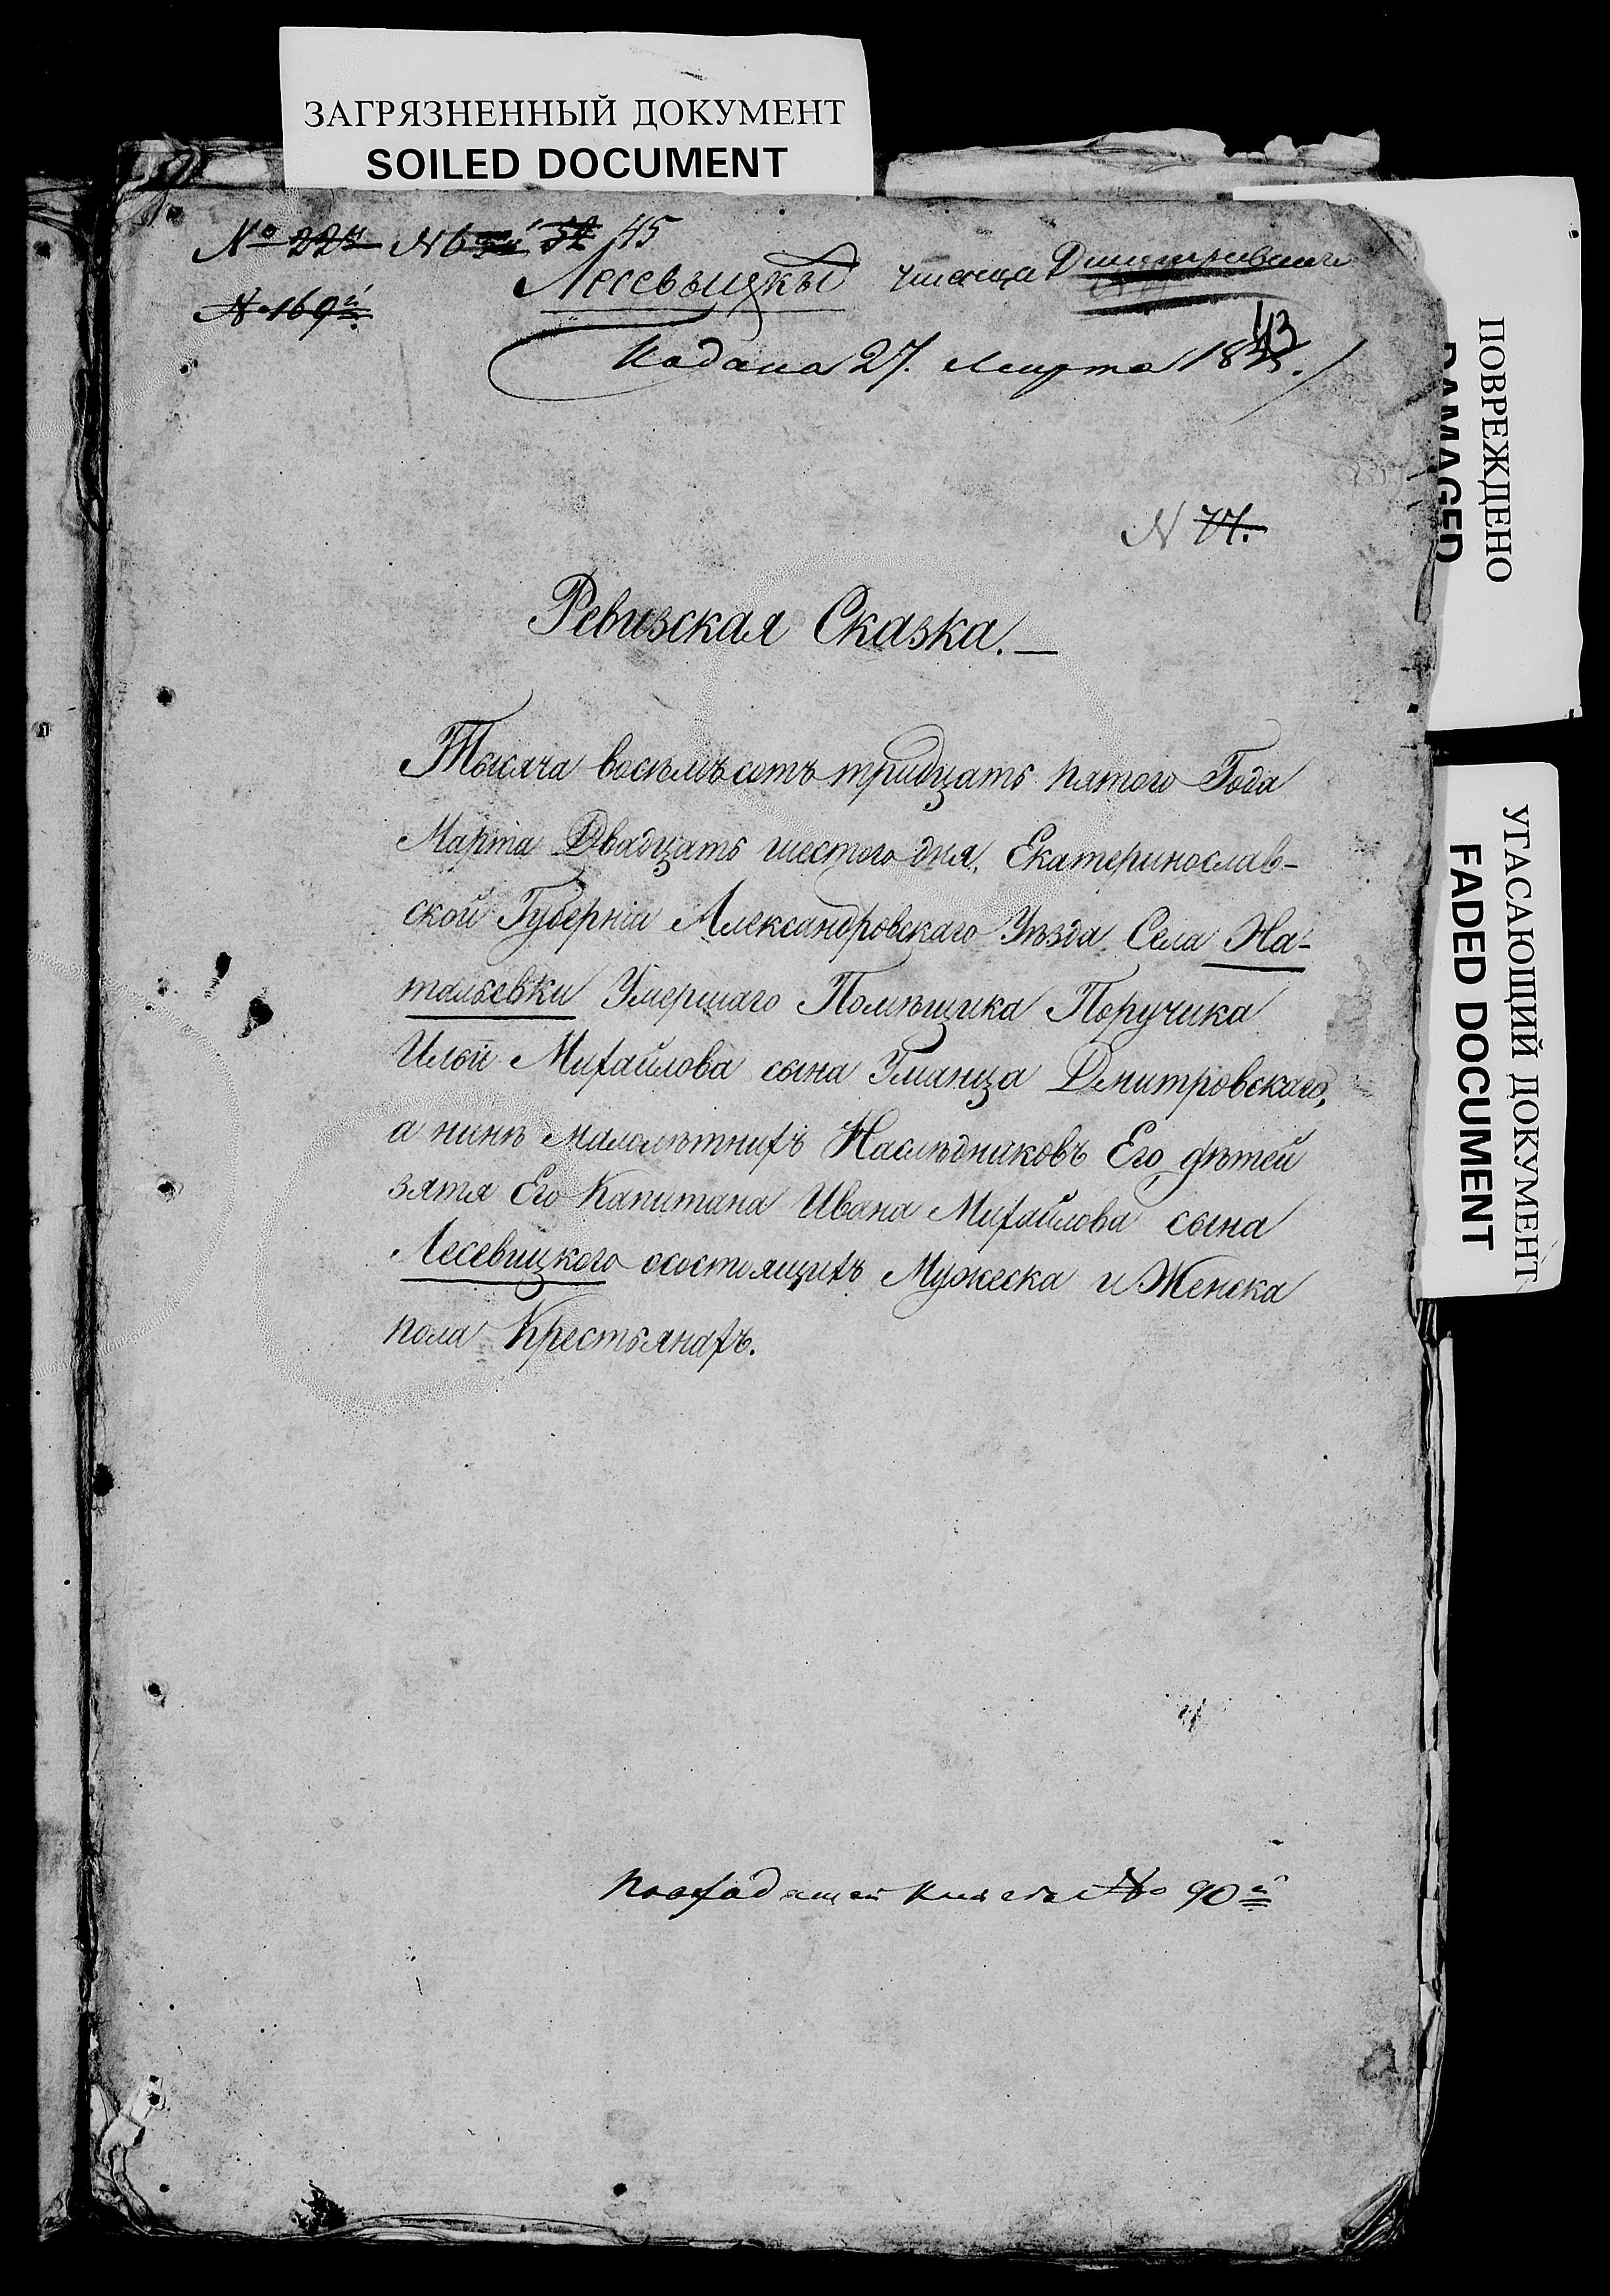 ЗАГРЯЗНЕННЫЙ ДОКУМЕНТ
SOILED DOCUMENT
ПОВРЕЖДЕНО
DAMAGED
УГАСАЮЩИЙ ДОКУМЕНТ
FADED DOCUMENT
№ 22 № 45
№ 169й
Лесевыцкый Дмитровскаго
Подана 27. Марта 183
43
N 71.
Ревизская Сказка.
Тысяча восемъсотъ тридцать пятого Года
Марта Двадцать шестого дня, Екатеринослав-
ской Губерніи Александровскаго Уѣзда Села На-
тальевки Умершаго Помѣщика Поручика
Ильи Михайлова сына Уманца Дмитровскаго,
а нинѣ малолѣтнихъ Наслѣдниковъ Его дѣтей
зятя Его Капитана Ивана Михайлова сына
Лесевицкого осостоящихъ Мужеска и Женска
пола Крестьянахъ.
№ 90й